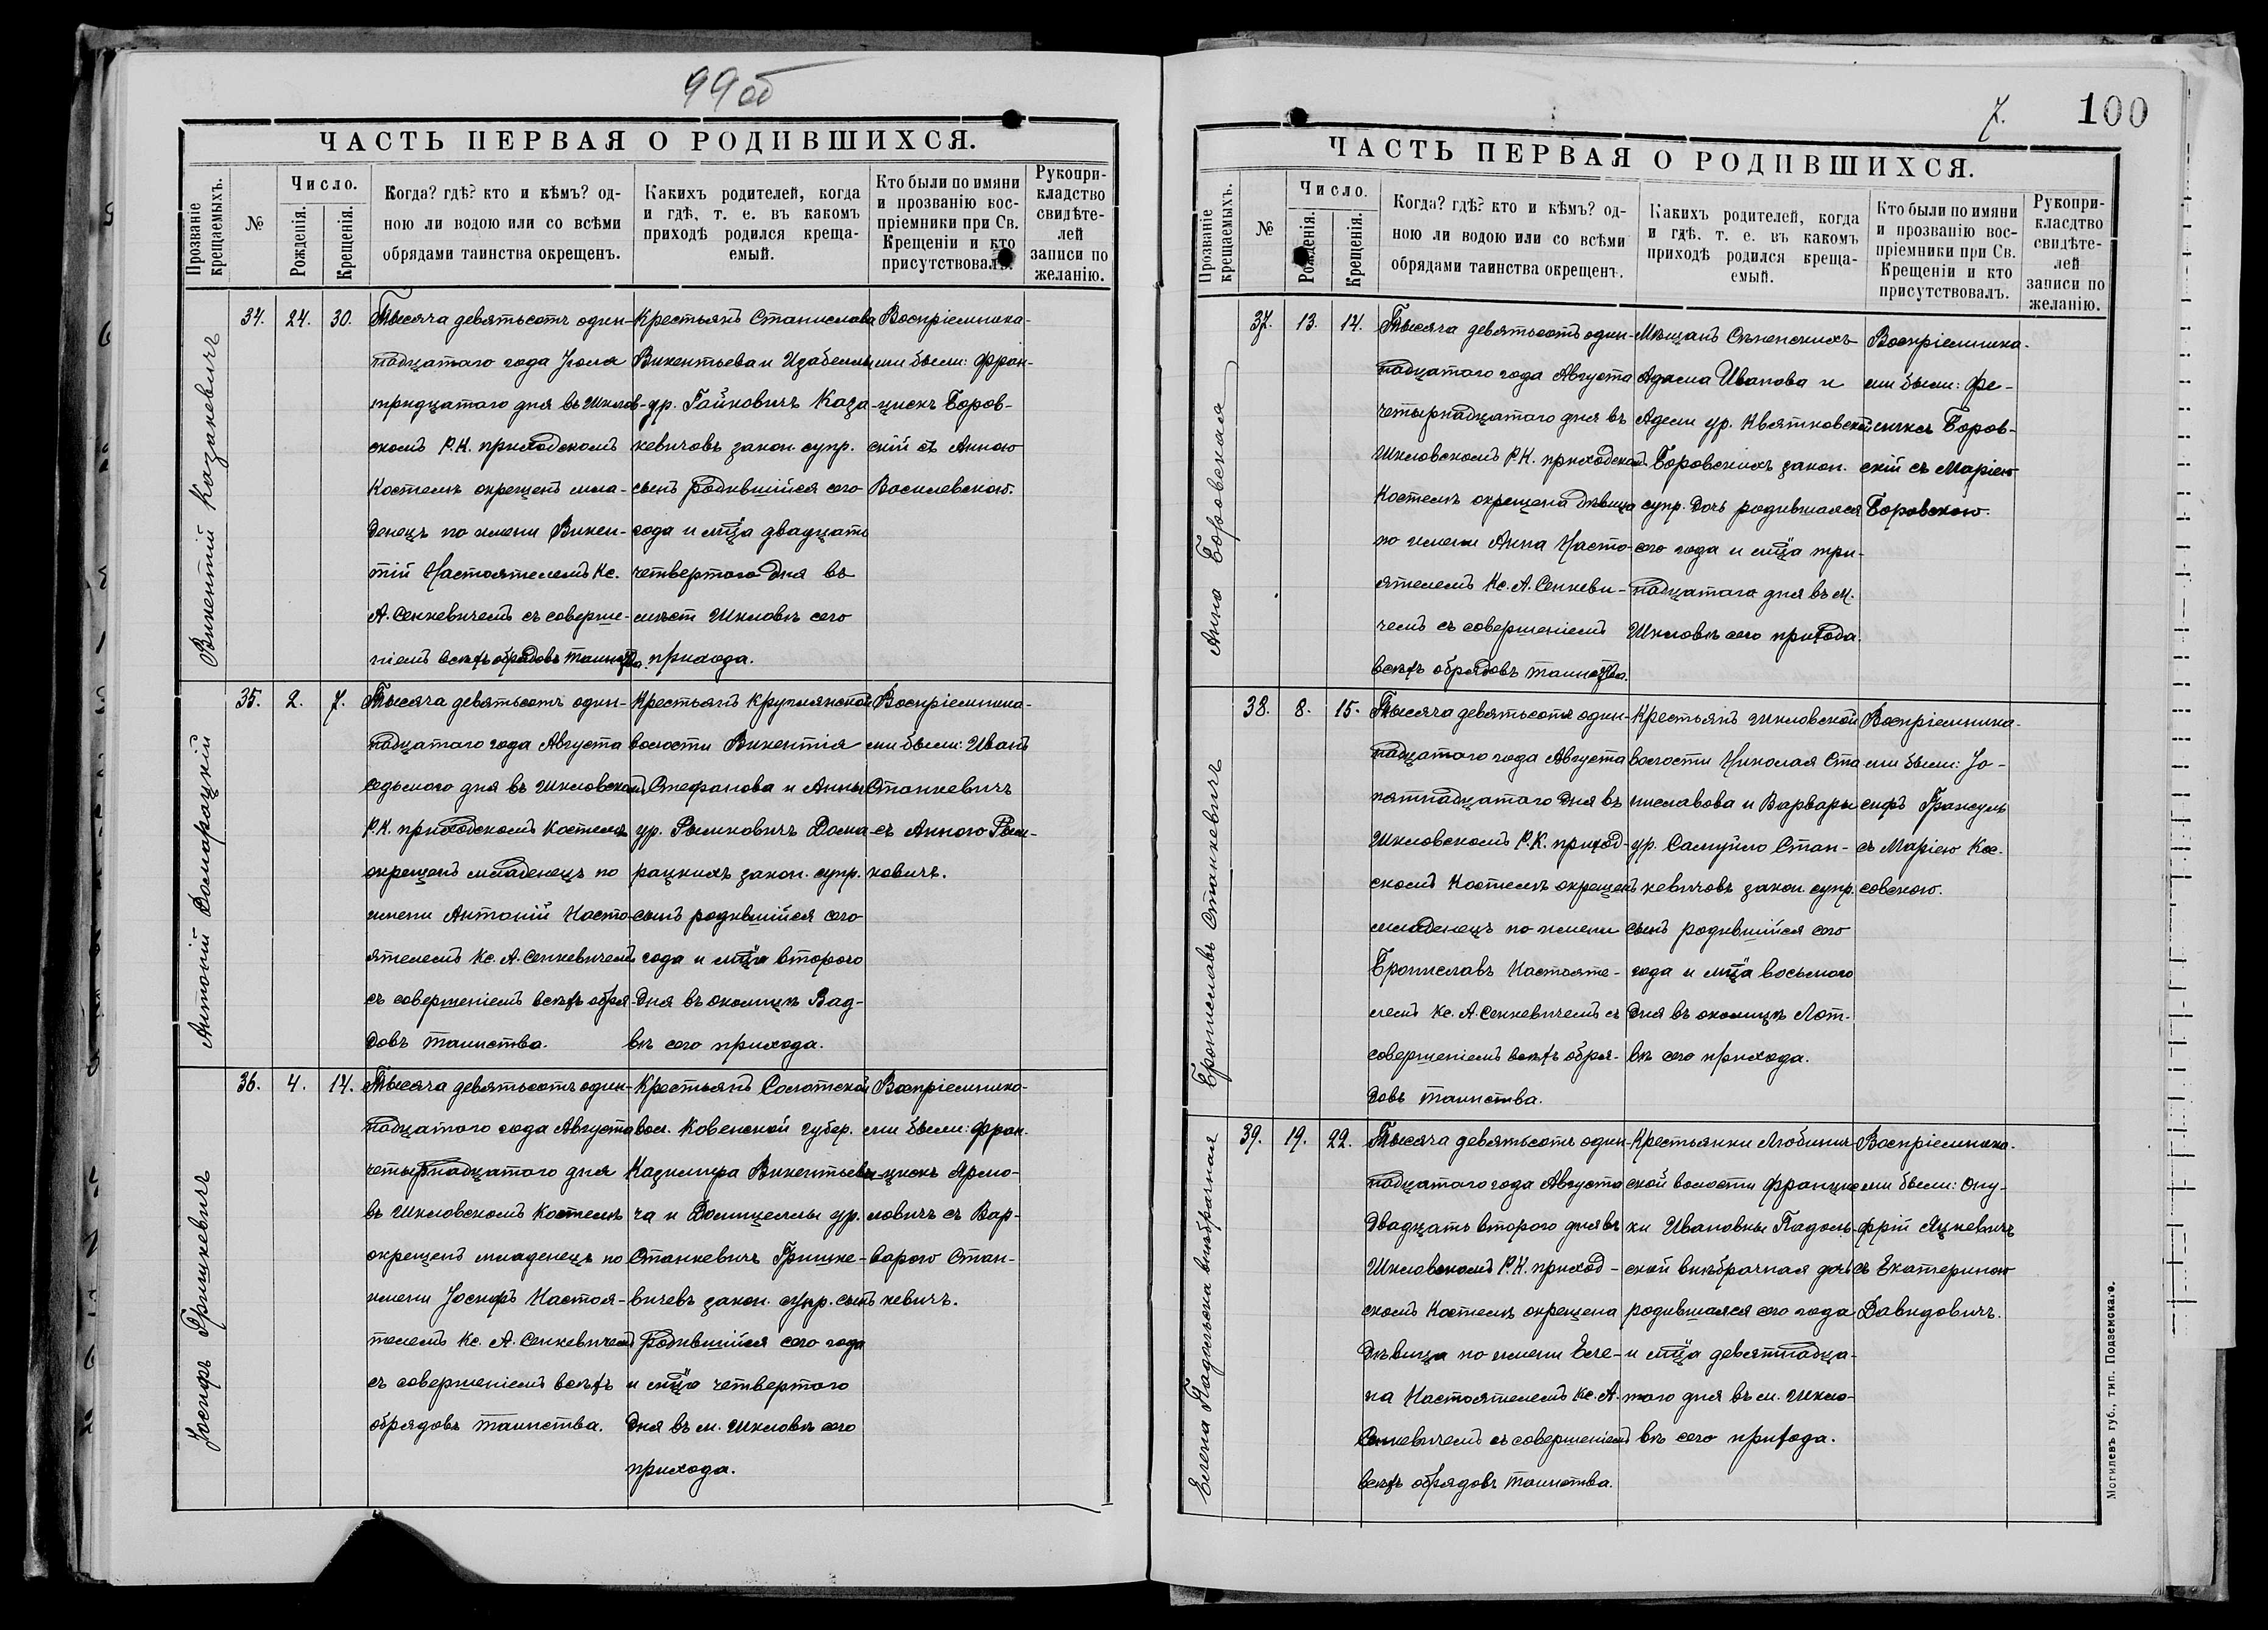 99об
ЧАСТЬ ПЕРВАЯ О РОДИВШИХСЯ.
Прозваніе крещаемыхъ.
№
Число.
Рожденія.
Крещенія.
Когда? гдѣ? кто и кѣмъ? од-
ною ли водою или со всѣми
обрядами таинства окрещенъ.
Какихъ родителей, когда
и гдѣ, т. е. въ какомъ
приходѣ родился креща-
емый.
Кто были по имяни
и прозванію вос-
пріемники при Св.
Крещеніи и кто
присутствовалъ.
Рукопри-
кладство
свидѣте-
лей
записи по
желанію.
Викентій Казакевичъ
34.
24.
30.
Тысяча девятьсотъ один-
надцатаго года Іюля
тридцатаго дня въ Шклов-
скомъ Р.К. приходскомъ
Костелѣ окрещенъ мла-
денецъ по имени Викен-
тій Настоятелемъ Кс.
А. Сенкевичемъ съ соверше-
ніемъ всѣхъ обрядовъ таинства.
Крестьянъ Станислава
Викентьева и Изабеллы
ур. Гайковичъ Каза-
кевичовъ закон. супр.
сынъ родившійся сего
года и мѣца двадцать
четвертого дня въ
мѣст Шкловѣ сего
прихода.
Воспріемника-
ми были: Фран-
цискъ Боров-
скій съ Анною
Василевскою.
Антоній Домарацкій
35.
2.
7.
Тысяча девятьсотъ один-
надцатаго года Августа
седьмого дня въ Шкловскомъ
Р.К. приходскомъ Костелѣ
окрещенъ младенецъ по
имени Антоній Насто-
ятелемъ Кс. А. Сенкевичемъ
съ совершеніемъ всѣхъ обря-
довъ таинства.
Крестьянъ Круглянской
волости Викентія
Стефанова и Анны
ур. Рымковичъ Дома-
рацкихъ закон. супр.
сынъ родившійся сего
года и мѣца второго
дня въ околицѣ Вад-
вѣ сего прихода.
Воспріемника-
ми были: Иванъ
Станкевичъ
съ Анною Рым-
ковичъ.
Іосифъ Гришкевичъ
36.
4.
14.
Тысяча девятьсотъ один-
надцатаго года Августа
четырнадцатаго дня
въ Шкловскомъ Костелѣ
окрещенъ младенецъ по
имени Іосифъ Настоя-
телемъ Кс. А. Сенкевичемъ
съ совершеніемъ всѣхъ
обрядовъ таинства.
Крестьянъ Солотской
вол. Ковенской губер.
Казимира Викентьева-
ча и Домицеллы ур.
Станкевичъ Гришке-
вичевъ закон. супр. сынъ
родившійся сего года
и мѣца четвертого
дня въ м. Шкловѣ сего
прихода.
Воспріемника-
ми были: Фран-
цискъ Ярмо-
ловичъ съ Вар-
варою Стан-
кевичъ.
7.
100
ЧАСТЬ ПЕРВАЯ О РОДИВШИХСЯ.
Прозваніе крещаемыхъ.
№
Число.
Рожденія.
Крещенія.
Когда? гдѣ? кто и кѣмъ? од-
ною ли водою или со всѣми
обрядами таинства окрещенъ.
Какихъ родителей, когда
и гдѣ. т. е. въ какомъ
приходѣ родился креща-
емый.
Кто были по имяни
и прозванію вос-
пріемники при Св.
Крещеніи и кто
присутствовалъ.
Рукопри-
класдтво
свидѣте-
лей
записи по
желанію.
Анна Боровская
37.
13.
14.
Тысяча девятьсотъ один-
надцатаго года Августа
четырнадцатаго дня въ
Шкловскомъ Р.К. приходском
Костелѣ окрещена дѣвица
по имени Анна Насто-
ятелемъ Кс. А. Сенкеви-
чемъ съ совершеніемъ
всѣхъ обрядовъ таинства.
Мѣщанъ Сѣненскихъ
Адама Иванова и
Адели ур. Квятковской
Боровскихъ закон.
супр. дочь родившаяся
сего года и мѣца три-
надцатаго дня въ м.
Шкловѣ сего прихода.
Воспріемника-
ми были: Фе-
ликсъ Боров-
скій съ Маріею
Боровскою.
Брониславъ Станкевичъ
38.
8.
15.
Тысяча девятьсотъ один-
надцатаго года Августа
пятнадцатаго дня въ
Шкловскомъ Р.К. приход-
скомъ Костелѣ окрещенъ
младенецъ по имени
Брониславъ Настояте-
лемъ Кс. А. Сенкевичемъ съ
совершеніемъ всѣхъ обря-
довъ таинства.
Крестьянъ Шкловской
волости Николая Ста-
ниславова и Варвары
ур. Самуйло Стан-
кевичовъ закон супр.
сынъ родившійся сего
года и мѣца восьмого
дня въ околицѣ Лот-
вѣ сего прихода.
Воспріемника-
ми были: Іо-
сифъ Грансуль
съ Маріею Кос-
совскою.
Елена Падольска внѣбрачная
39.
19.
22.
Тысяча девятьсотъ один-
надцатаго года Августа
двадцать второго дня въ
Шкловскомъ Р.К. приход-
скомъ Костелѣ окрещена
дѣвица по имени Еле-
на Настоятелемъ Кс. А.
Сенкевичемъ съ совершеніемъ
всѣхъ обрядовъ таинства.
Крестьянки Любинич-
ской волости Францис-
ки Ивановны Падоль-
ской внѣбрачная дочь
родившаяся сего года
и мѣца девятнадца-
таго дня въ м. Шкло-
вѣ сего прихода.
Воспріемника-
ми были: Ону-
фрій Яцкевичъ
съ Екатериною
Давидовичъ.
Могилевъ губ., тип. Подземскаго.